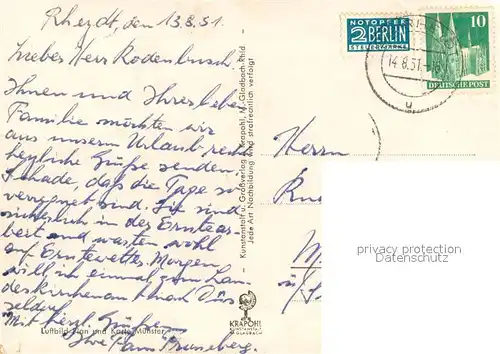 Rheydt, den 13.8.51.
Liebes Herr Rodenbusch.
Ihnen und Ihrer lieben
Familie möchten wir
aus unserm Urlaub recht
herzliche Grüße senden.
Schade, daß die Tage so
verregnet sind. Sie sind
sicherlich in der Erntear-
beit und warten wohl
auf Erntewetter. Morgen
will ich einmal zum Lan-
deskirchenamt nach Düs
seldorf.
Mit herzl. Grüßen
Ihre Fam.
Luftbild Plan und Karte Münster
Kunstanstalt u. Großverlag Krapohl, M. Gladbach-Rhld.
Jede Art Nachbildung wird strafrechtlich verfolgt
KRAPOHL
KUNSTANSTALT
M. GLADBACH
NOTOPFER
2 BERLIN
STEUERMARKE
14.8.51
u
10
DEUTSCHE POST
Herrn
privacy protection
Datenschutz